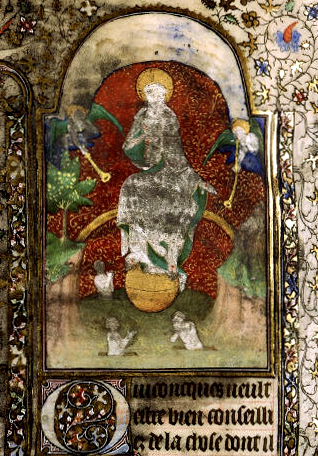 Quiconques veult
estre bien conseilli
ez de la chose dont il